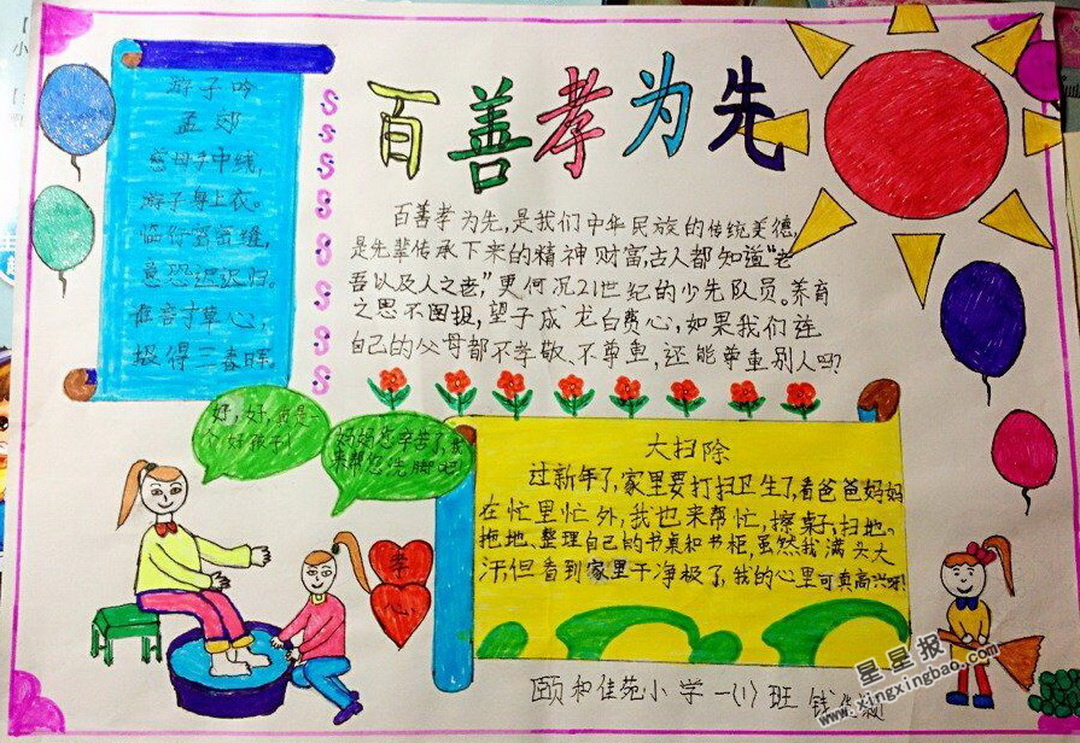 百善孝为先
游子吟
孟郊
慈母手中线,
游子身上衣。
临行密密缝,
意恐迟迟归。
谁言寸草心,
报得三春晖。
百善孝为先,是我们中华民族的传统美德,
是先辈传承下来的精神财富,古人都知道“老
吾以及人之老”,更何况21世纪的少先队员。养育
之恩不图报,望子成龙白费心,如果我们连
自己的父母都不孝敬、不尊重,还能尊重别人吗?
好,好,真是一
个好孩子!
妈妈您辛苦了,我
来帮您洗脚吧!
孝
心
大扫除
过新年了,家里要打扫卫生了,看爸爸妈妈
在忙里忙外,我也来帮忙,擦桌子、扫地。
拖地、整理自己的书桌和书柜,虽然我满头大
汗,但看到家里干净极了,我的心里可真高兴呀!
颐和佳苑小学一(1)班 钱
星星报
www.xingxingbao.com